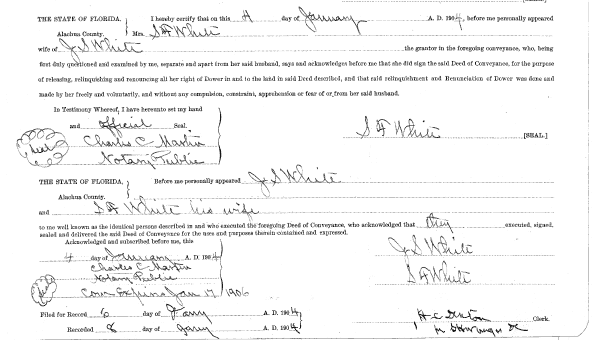 THE STATE OF FLORIDA, I hereby certify that on this 4 day of January A. D. 1904, before me personally appeared
Alachua County. Mrs. S F White
wife of J S White the grantor in the foregoing conveyance, who, being
first duly questioned and examined by me, separate and apart from her said husband, says and acknowledges before me that she did sign the said Deed of Conveyance, for the purpose
of releasing, relinquishing and renouncing all her right of Dower in and to the land in said Deed described, and that said relinquishment and Renunciation of Dower was done and
made by her freely and voluntarily, and without any compulsion, constraint, apprehension or fear of or from her said husband.
In Testimony Whereof, I have hereunto set my hand
and official Seal.
Seal Charles C Martin S F White [SEAL.]
Notary Public
THE STATE OF FLORIDA, Before me personally appeared J S White
Alachua County.
and S F White his wife
to me well known as the identical persons described in and who executed the foregoing Deed of Conveyance, who acknowledged that they executed, signed,
sealed and delivered the said Deed of Conveyance for the uses and purposes therein contained and expressed.
Acknowledged and subscribed before me, this J S White
4 day of January A. D. 1904
Charles C Martin S F White
Seal Notary Public
Com Expires Jan 17 1906
Filed for Record 6 day of Jany A. D. 1904 H C Clerk.
Recorded 8 day of Jany A. D. 1904